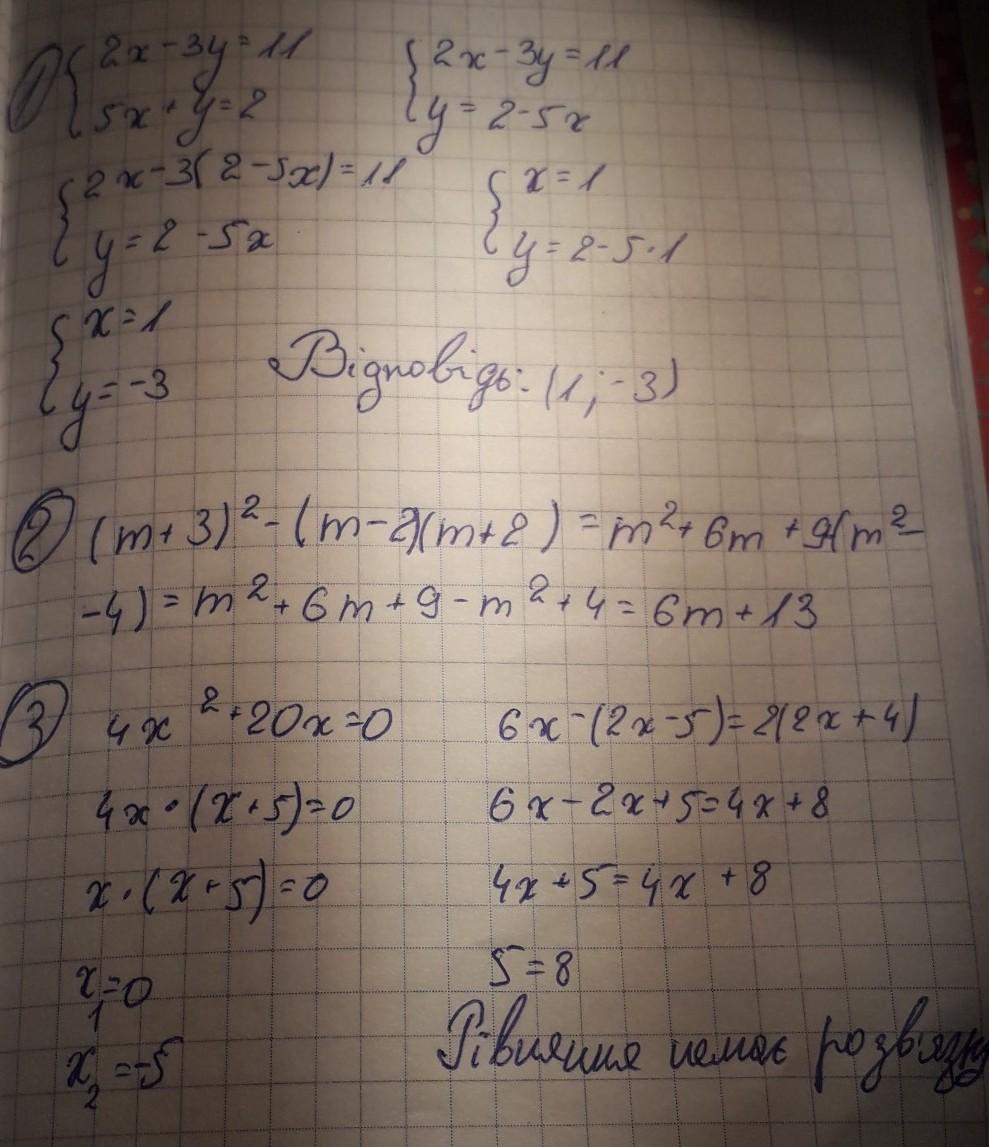 ① { 2x-3y=11
5x+y=2
{ 2x-3y=11
y=2-5x
{ 2x-3(2-5x)=11
y=2-5x
{ x=1
y=2-5·1
{ x=1
y=-3
Відповідь: (1;-3)
② (m+3)²-(m-2)(m+2)=m²+6m+9-(m²-
-4)=m²+6m+9-m²+4=6m+13
③ 4x²+20x=0
4x·(x+5)=0
x·(x+5)=0
x₁=0
x₂=-5
6x-(2x-5)=2(2x+4)
6x-2x+5=4x+8
4x+5=4x+8
5=8
Рівняння немає розв'язку